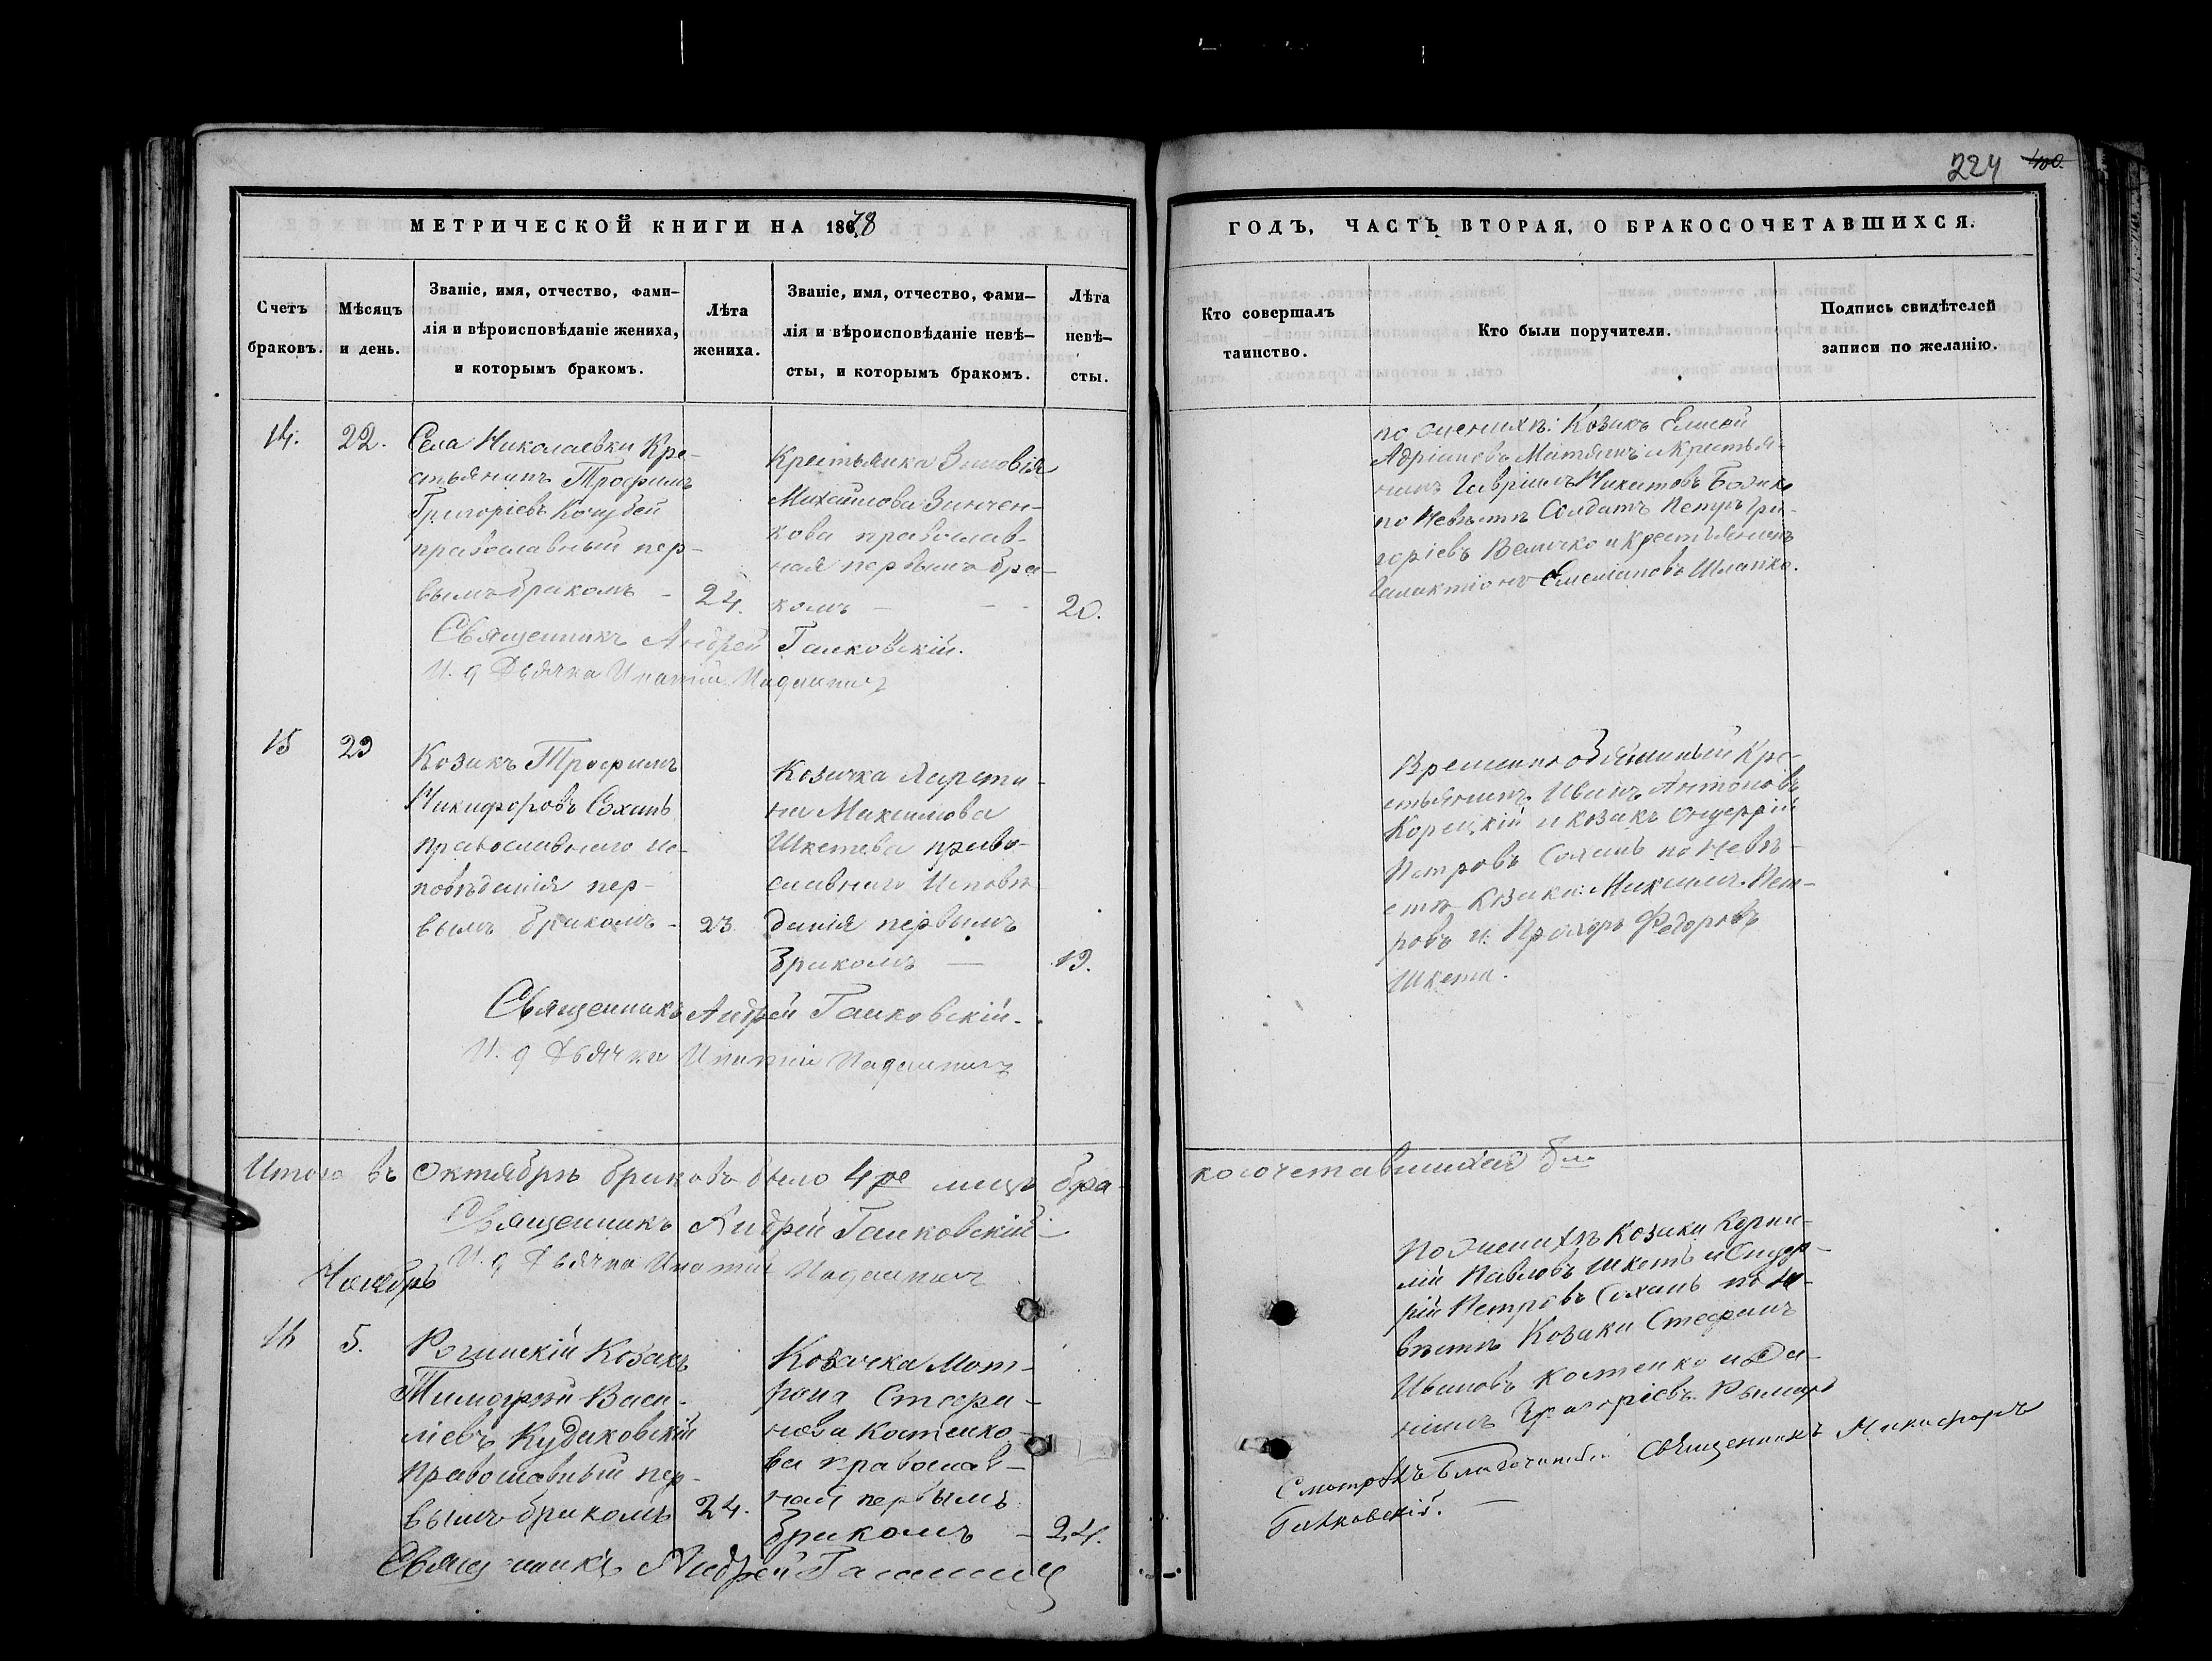 224 400.
МЕТРИЧЕСКОЙ КНИГИ НА 1878
ГОДЪ, ЧАСТЬ ВТОРАЯ, О БРАКОСОЧЕТАВШИХСЯ.
Счетъ
браковъ.
Мѣсяцъ
и день.
Званіе, имя, отчество, фами-
лія и вѣроисповѣданіе жениха,
и которымъ бракомъ.
Лѣта
жениха.
Званіе, имя, отчество, фами-
лія и вѣроисповѣданіе невѣ-
сты, и которымъ бракомъ.
Лѣта
невѣ-
сты.
Кто совершалъ
таинство.
Кто были поручители.
Подпись свидѣтелей
записи по желанію.
14.
22.
Села Николаевки Кре-
стьянинъ Трофимъ
Григоріевъ Кочубей
православный пер-
вымъ бракомъ -
24.
Крестьянка Зиновія
Михайлова Зинчен-
кова православ-
ная первымъ бра-
комъ -
20.
по женихѣ: Козакъ Елисей
Адріановъ и Крестья-
нинъ Гавріилъ Никитовъ
по Невѣстѣ Солдатъ Петръ Гри-
горіевъ Величко и Крестьянинъ
Галактіонъ Емеліановъ Шляпко.
Священникъ Андрей Галковскій.
И. д Дьячка Ипатій
15
23
Козакъ Трофимъ
Никифоровъ Сохань
Православнаго ис-
повѣданія пер-
вымъ бракомъ -
23
Козачка
на Максимова
Шкетева право-
славнаго Исповѣ
данія первымъ
бракомъ —
19.
Временно обязанный Кре-
стьянинъ Иванъ Антоновъ
Корецкій и козакъ
Петровъ Сохань по Невѣ-
стѣ Козаки: Максимъ Пет-
ровъ и Прохоръ Федоровъ
Шкети.
Священникъ Андрей Галковскій.
И. д Дьячка Ипатій
Итого въ Октябрѣ браковъ было 4ре лицъ бра-
косочетавшихся 8мь
Священникъ Андрей Галковскій
И. д Дьячка Ипатій
Ноябрь
16
5.
Рогинскій Козакъ
Тимофей Васи-
ліевъ Кудаковскій
Православный пер-
вымъ бракомъ
24.
Козачка Мот-
рона Стефа-
нова Костенко-
ва православ-
ная первымъ
бракомъ -
24.
По Женихѣ Козаки Корни-
лій Павловъ Шкеть и
Петровъ Сохань по Не-
вѣстѣ Козаки Стефанъ
Ивановъ Костенко и Да-
ніилъ Григоріевъ Рымарь
Священникъ Андрей
Смотрѣлъ Благочинный Священникъ Никифоръ